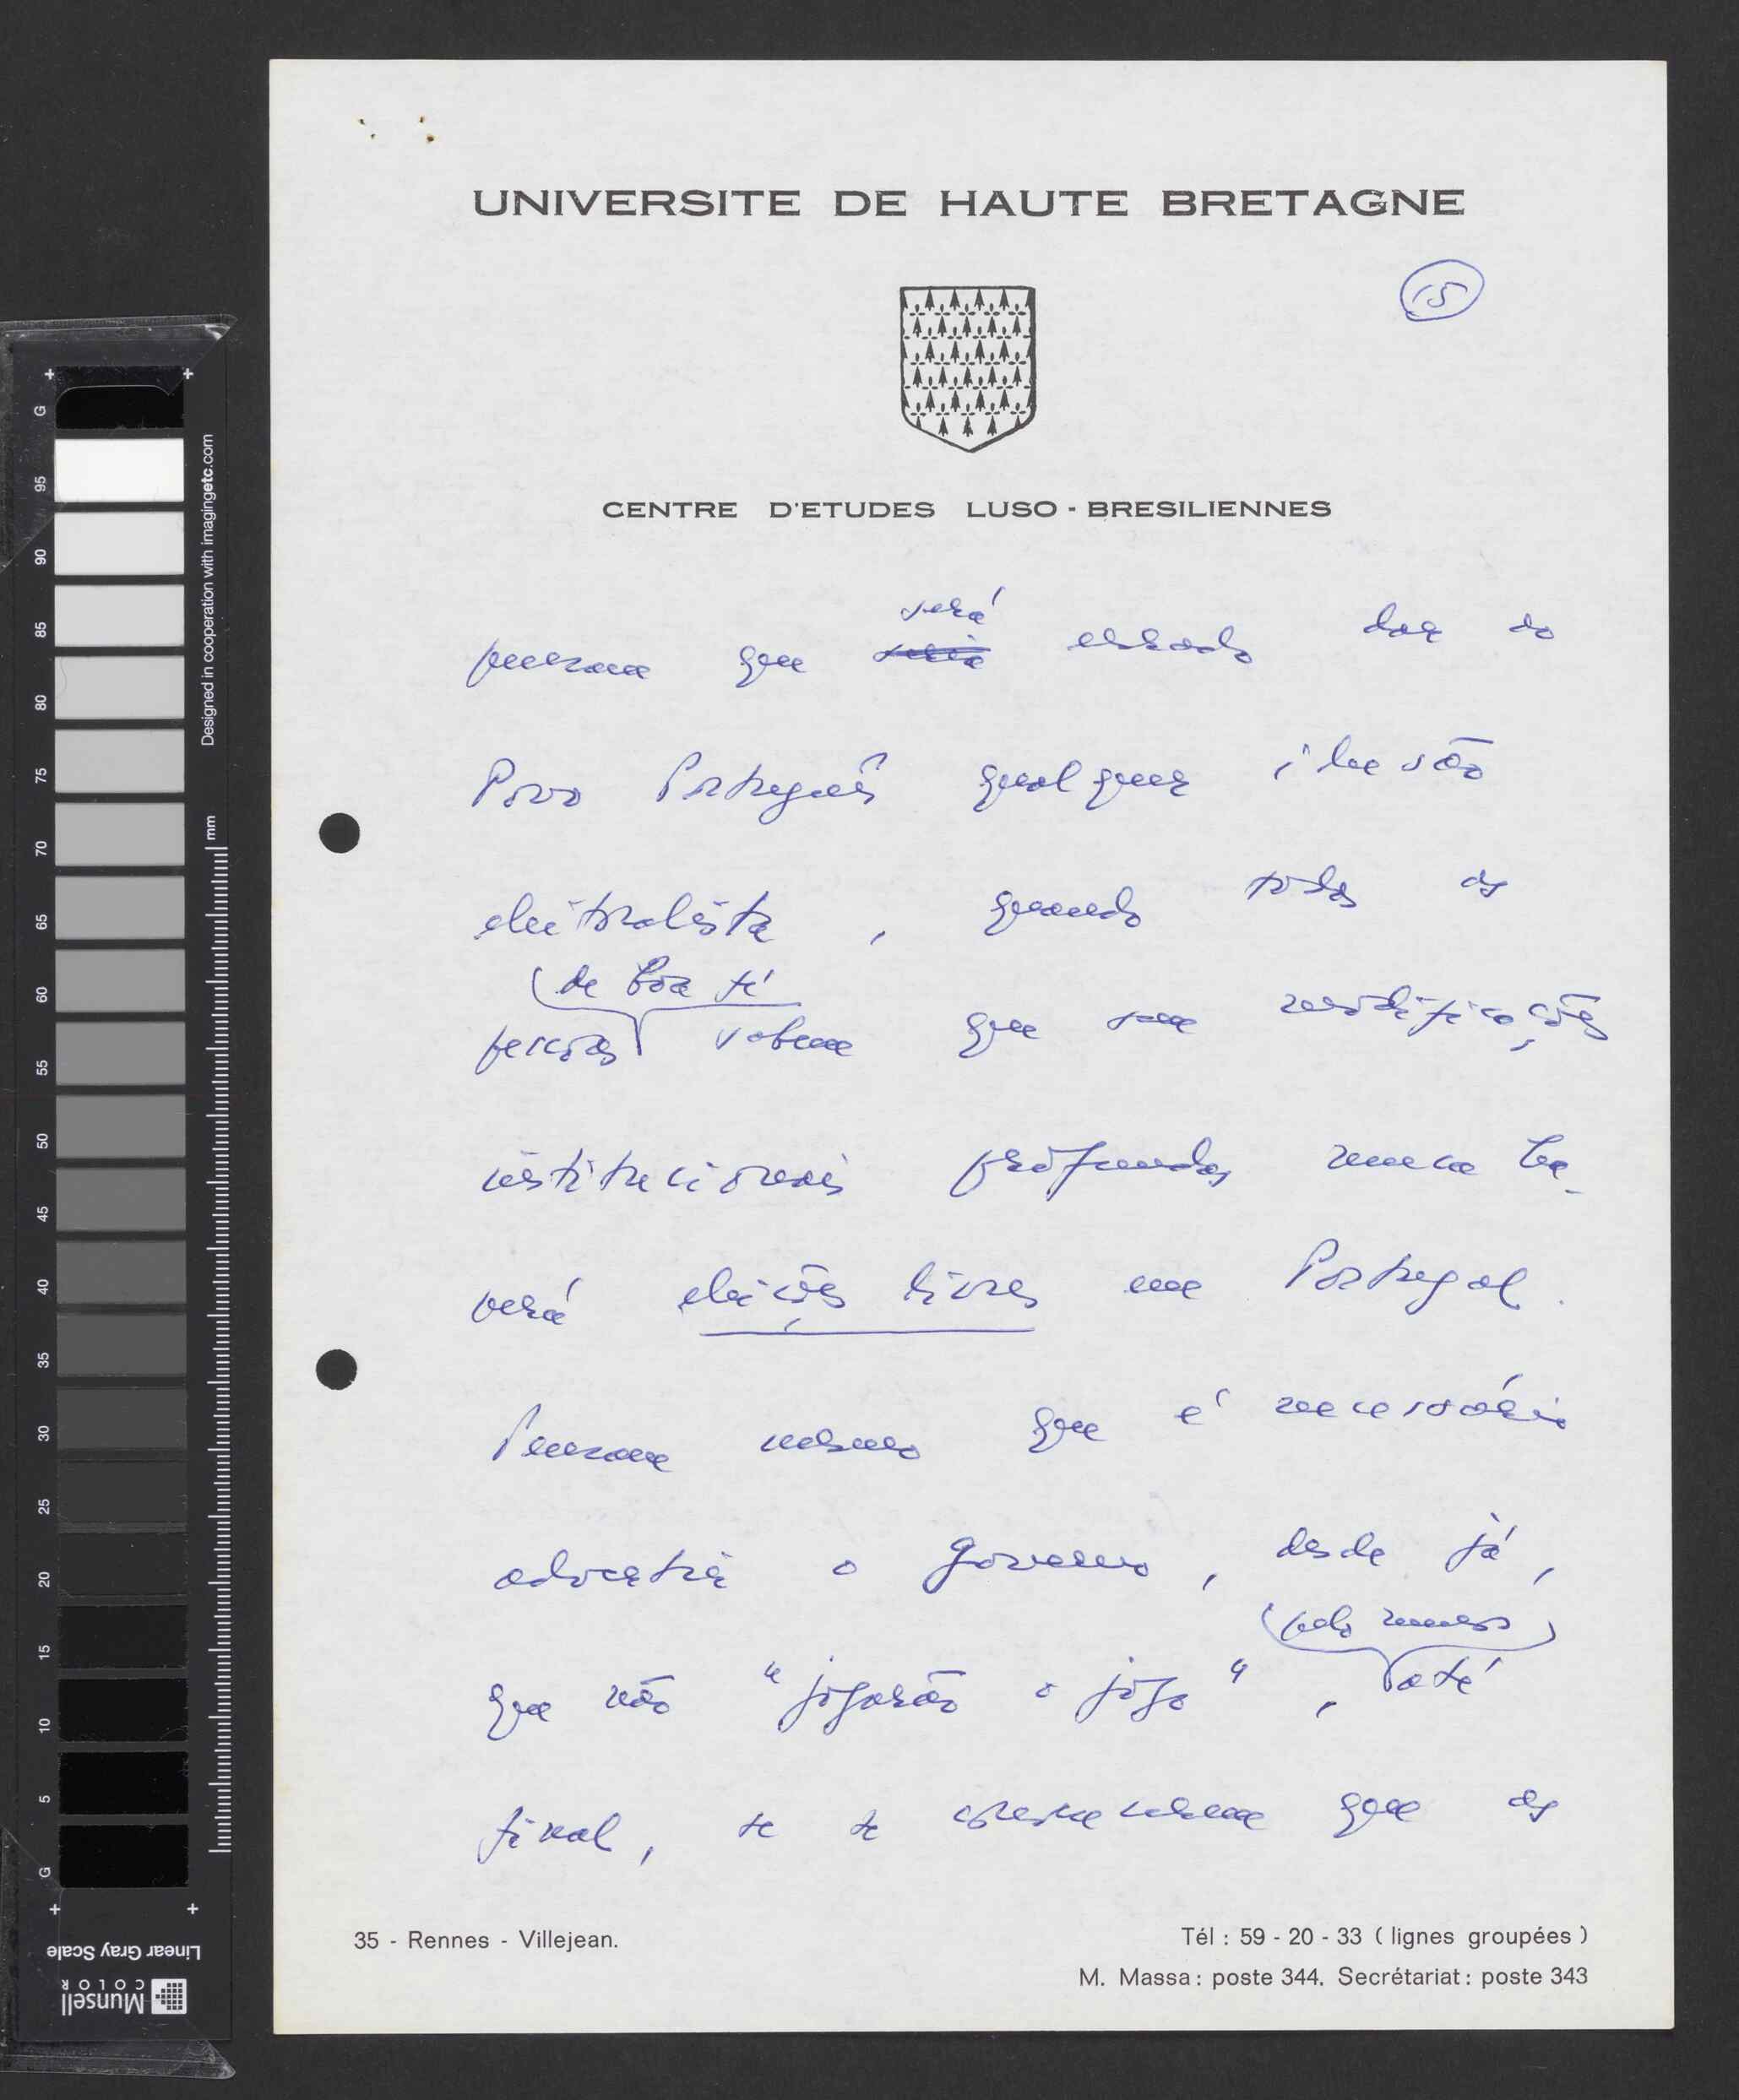 UNIVERSITE DE HAUTE BRETAGNE
15
CENTRE D'ETUDES LUSO - BRESILIENNES
será
pensam que seria errado dar ao
Povo Português qualquer ilusão
eleitoralista, quando todas as
(de boa fé
pessoas sabem que sem modificações
institucionais profundas nunca ha-
verá eleições livres em Portugal.
Pensam mesmo que é necessário
advertir o Governo, desde já,
(pelo menos)
que não "jogarão o jogo", até
final, se se convencerem que as
35 - Rennes - Villejean.
Tél : 59 - 20 - 33 ( lignes groupées )
M. Massa : poste 344. Secrétariat : poste 343
Designed in cooperation with imagingetc.com
mm
G
95
90
85
80
75
70
65
60
55
50
45
40
35
30
25
20
15
10
5
G
Linear Gray Scale
Munsell
COLOR